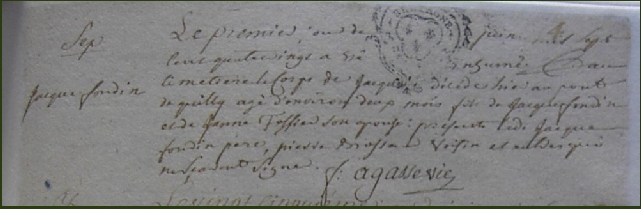 Sep
Jacque fondin
Le premier jour de juin mil sept
cent quatre vingt a été inhumé dans
le cimetiere le Corps de Jacque décédé hier au pont
de quilly agé d'environ deux mois fils de Jacque fondin
et de Jeanne Tessier son epouse: presents ledit Jacque
fondin père, pierre Voisin et autres qui
ne scavent signer.
f: agassevic